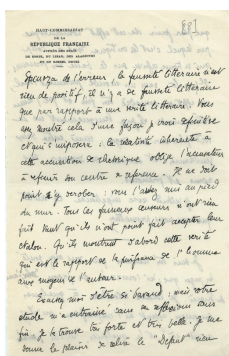 887
HAUT-COMMISSARIAT
DE LA
RÉPUBLIQUE FRANÇAISE
AUPRÈS DES ÉTATS
DE SYRIE, DU LIBAN, DES ALAOUITES
ET DU DJEBEL DRUZE
Spinoza de l'erreur, la fausseté littéraire n'est
rien de positif, il n'y a de fausseté littéraire
que par rapport à une vérité littéraire. Vous
avez montré cela d'une façon
et qui s'impose : la relativité inhérente à
cette accusation de rhétorique oblige l'accusateur
à définir son centre de référence. Il ne doit
point s'y dérober, vous l'avez mis au pied
du mur. Tous les fameux censeurs n'ont rien
fait tant qu'ils n'ont point fait accepter leur
étalon. Qu'ils montrent d'abord cette vérité
qui est le rapport de la puissance de l'homme
aux moyens de l'auteur.
Excusez-moi d'être si bavard, mais votre
étude m'a entraîné dans des réflexions sans
fin. Je la trouve bien forte et très belle. Je me
donne le plaisir de relire le "Début rien